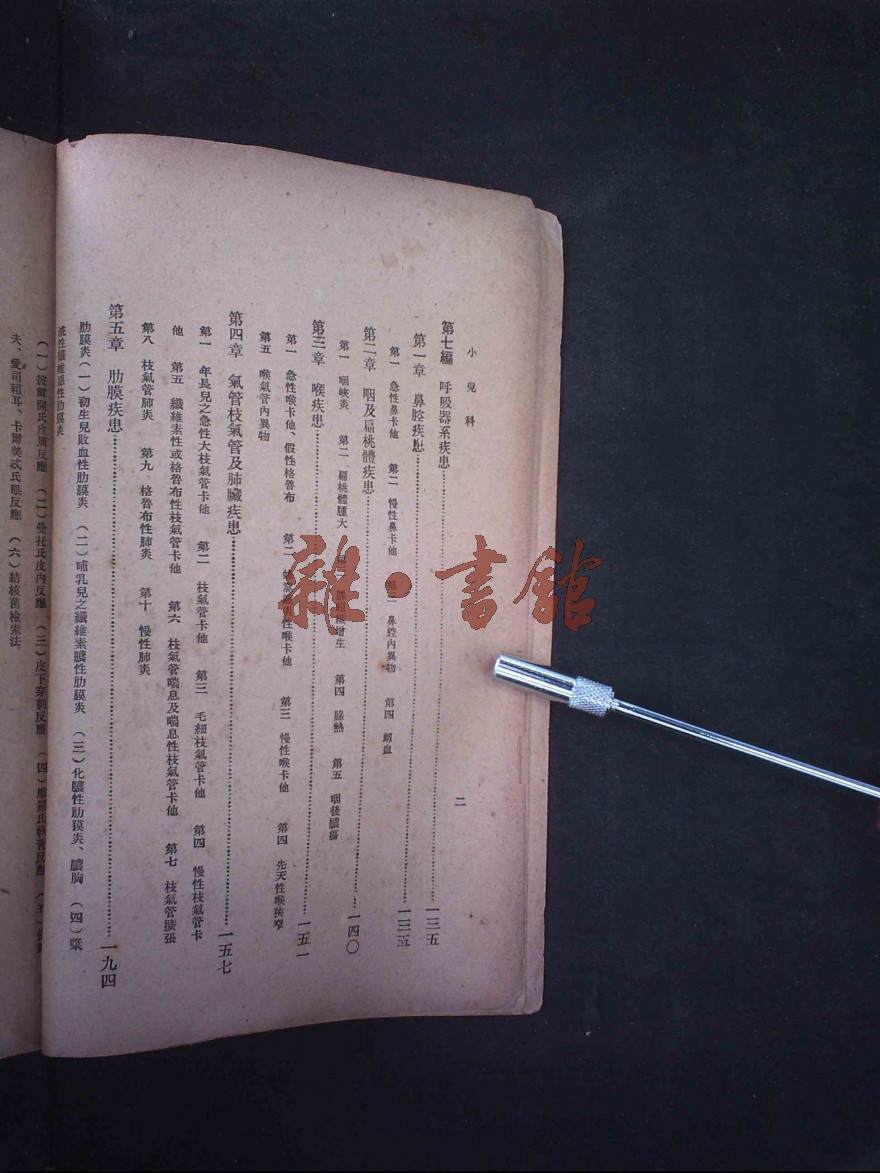 小兒科
二
第七編 呼吸器系疾患……一三五
第一章 鼻腔疾患……一三五
第一 急性鼻卡他 第二 慢性鼻卡他 第三 鼻腔內異物 第四 衂血
第二章 咽及扁桃體疾患……一四〇
第一 咽峽炎 第二 扁桃體腫大 增生 第四 腺熱 第五 咽後膿瘍
第三章 喉疾患……一五一
第一 急性喉卡他、假性格魯布 第二 性喉卡他 第三 慢性喉卡他 第四 先天性喉狹窄
第五 喉氣管內異物
第四章 氣管枝氣管及肺臟疾患……一五七
第一 年長兒之急性大枝氣管卡他 第二 枝氣管卡他 第三 毛細枝氣管卡他 第四 慢性枝氣管卡
他 第五 纖維素性或格魯布性枝氣管卡他 第六 枝氣管喘息及喘息性枝氣管卡他 第七 枝氣管擴張
第八 枝氣管肺炎 第九 格魯布性肺炎 第十 慢性肺炎
第五章 肋膜疾患……一九四
肋膜炎(一)初生兒敗血性肋膜炎 (二)哺乳兒之纖維素膿性肋膜炎 (三)化膿性肋膜炎、膿胸 (四)漿
液性纖維素性肋膜炎
(一) 氏皮膚反應 (二)曼托氏皮內反應 (三)皮下穿刺反應 (四) 氏軟膏反應
夫、愛司祖耳、卡爾美忒氏眼反應 (六)結核菌檢索法
雜·書館